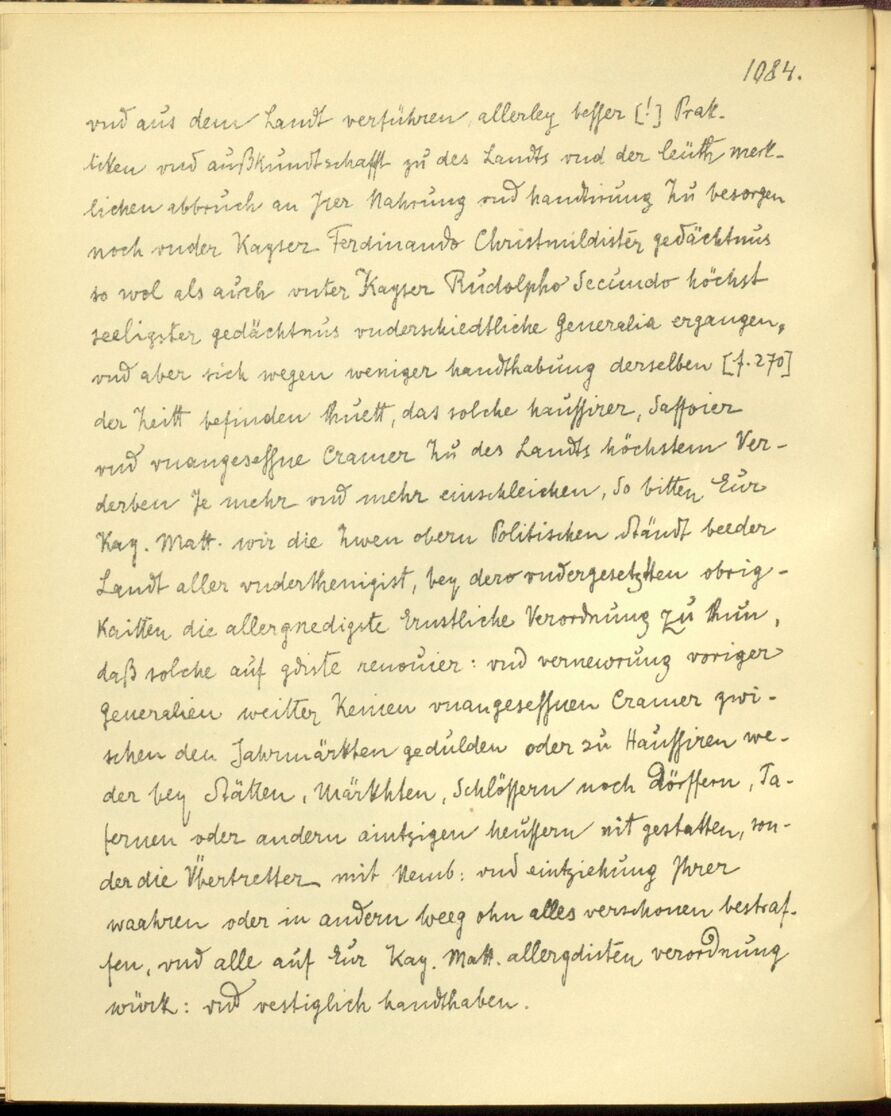 1084.
vnd aus dem Landt verführen, allerley besser [!] Prak-
ticken vnd außkundtschafft zu des Landts vnd der leüth merk-
lichen abbruch an Irer Nahrung vnd handtirung Zu besorgen
noch vnder Kayser Ferdinando Christmildister gedächtnus
so wol als auch vnter Kayser Rudolpho Secundo höchst
seeligster gedächtnus vnderschiedtliche Generalia ergangen,
vnd aber sich wegen weniger handthabung derselben [f. 270]
der Zeitt befinden thuett, das solche haussirer, Saffoier
vnd vnangesessne Cramer Zu des Landts höchstem Ver-
derben Je mehr vnd mehr einschleichen, So bitten Eur
Kay. Matt. wir die Zwen obern Politischen Ständt beeder
Landt aller vnderthenigist, bey dero vndergesetzten obrig-
Kaitten die allergnedigste Ernstliche Verordnung zu thun,
daß solche auf gdiste renouier: vnd vernewrung voriger
Generalien weitter Keinen vnangesessnen Cramer zwi-
schen den Jahrmärkten gedulden oder zu Haussiren we-
der bey Stätten, Märkhten, Schlössern noch Dörffern, Ta-
fernen oder andern aintzigen heussern nit gestatten, son-
der die Übertretter mit Nemb: vnd eintziehung Ihrer
waahren oder in andern weeg ohn alles verschonen bestraf-
fen, vnd alle auf Eur Kay. Matt. allergdisten verordnung
würk: vnd vestiglich handthaben.